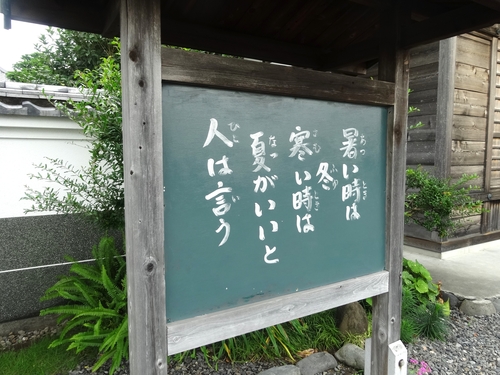 暑い時は
冬
寒い時は
夏がいいと
人は言う